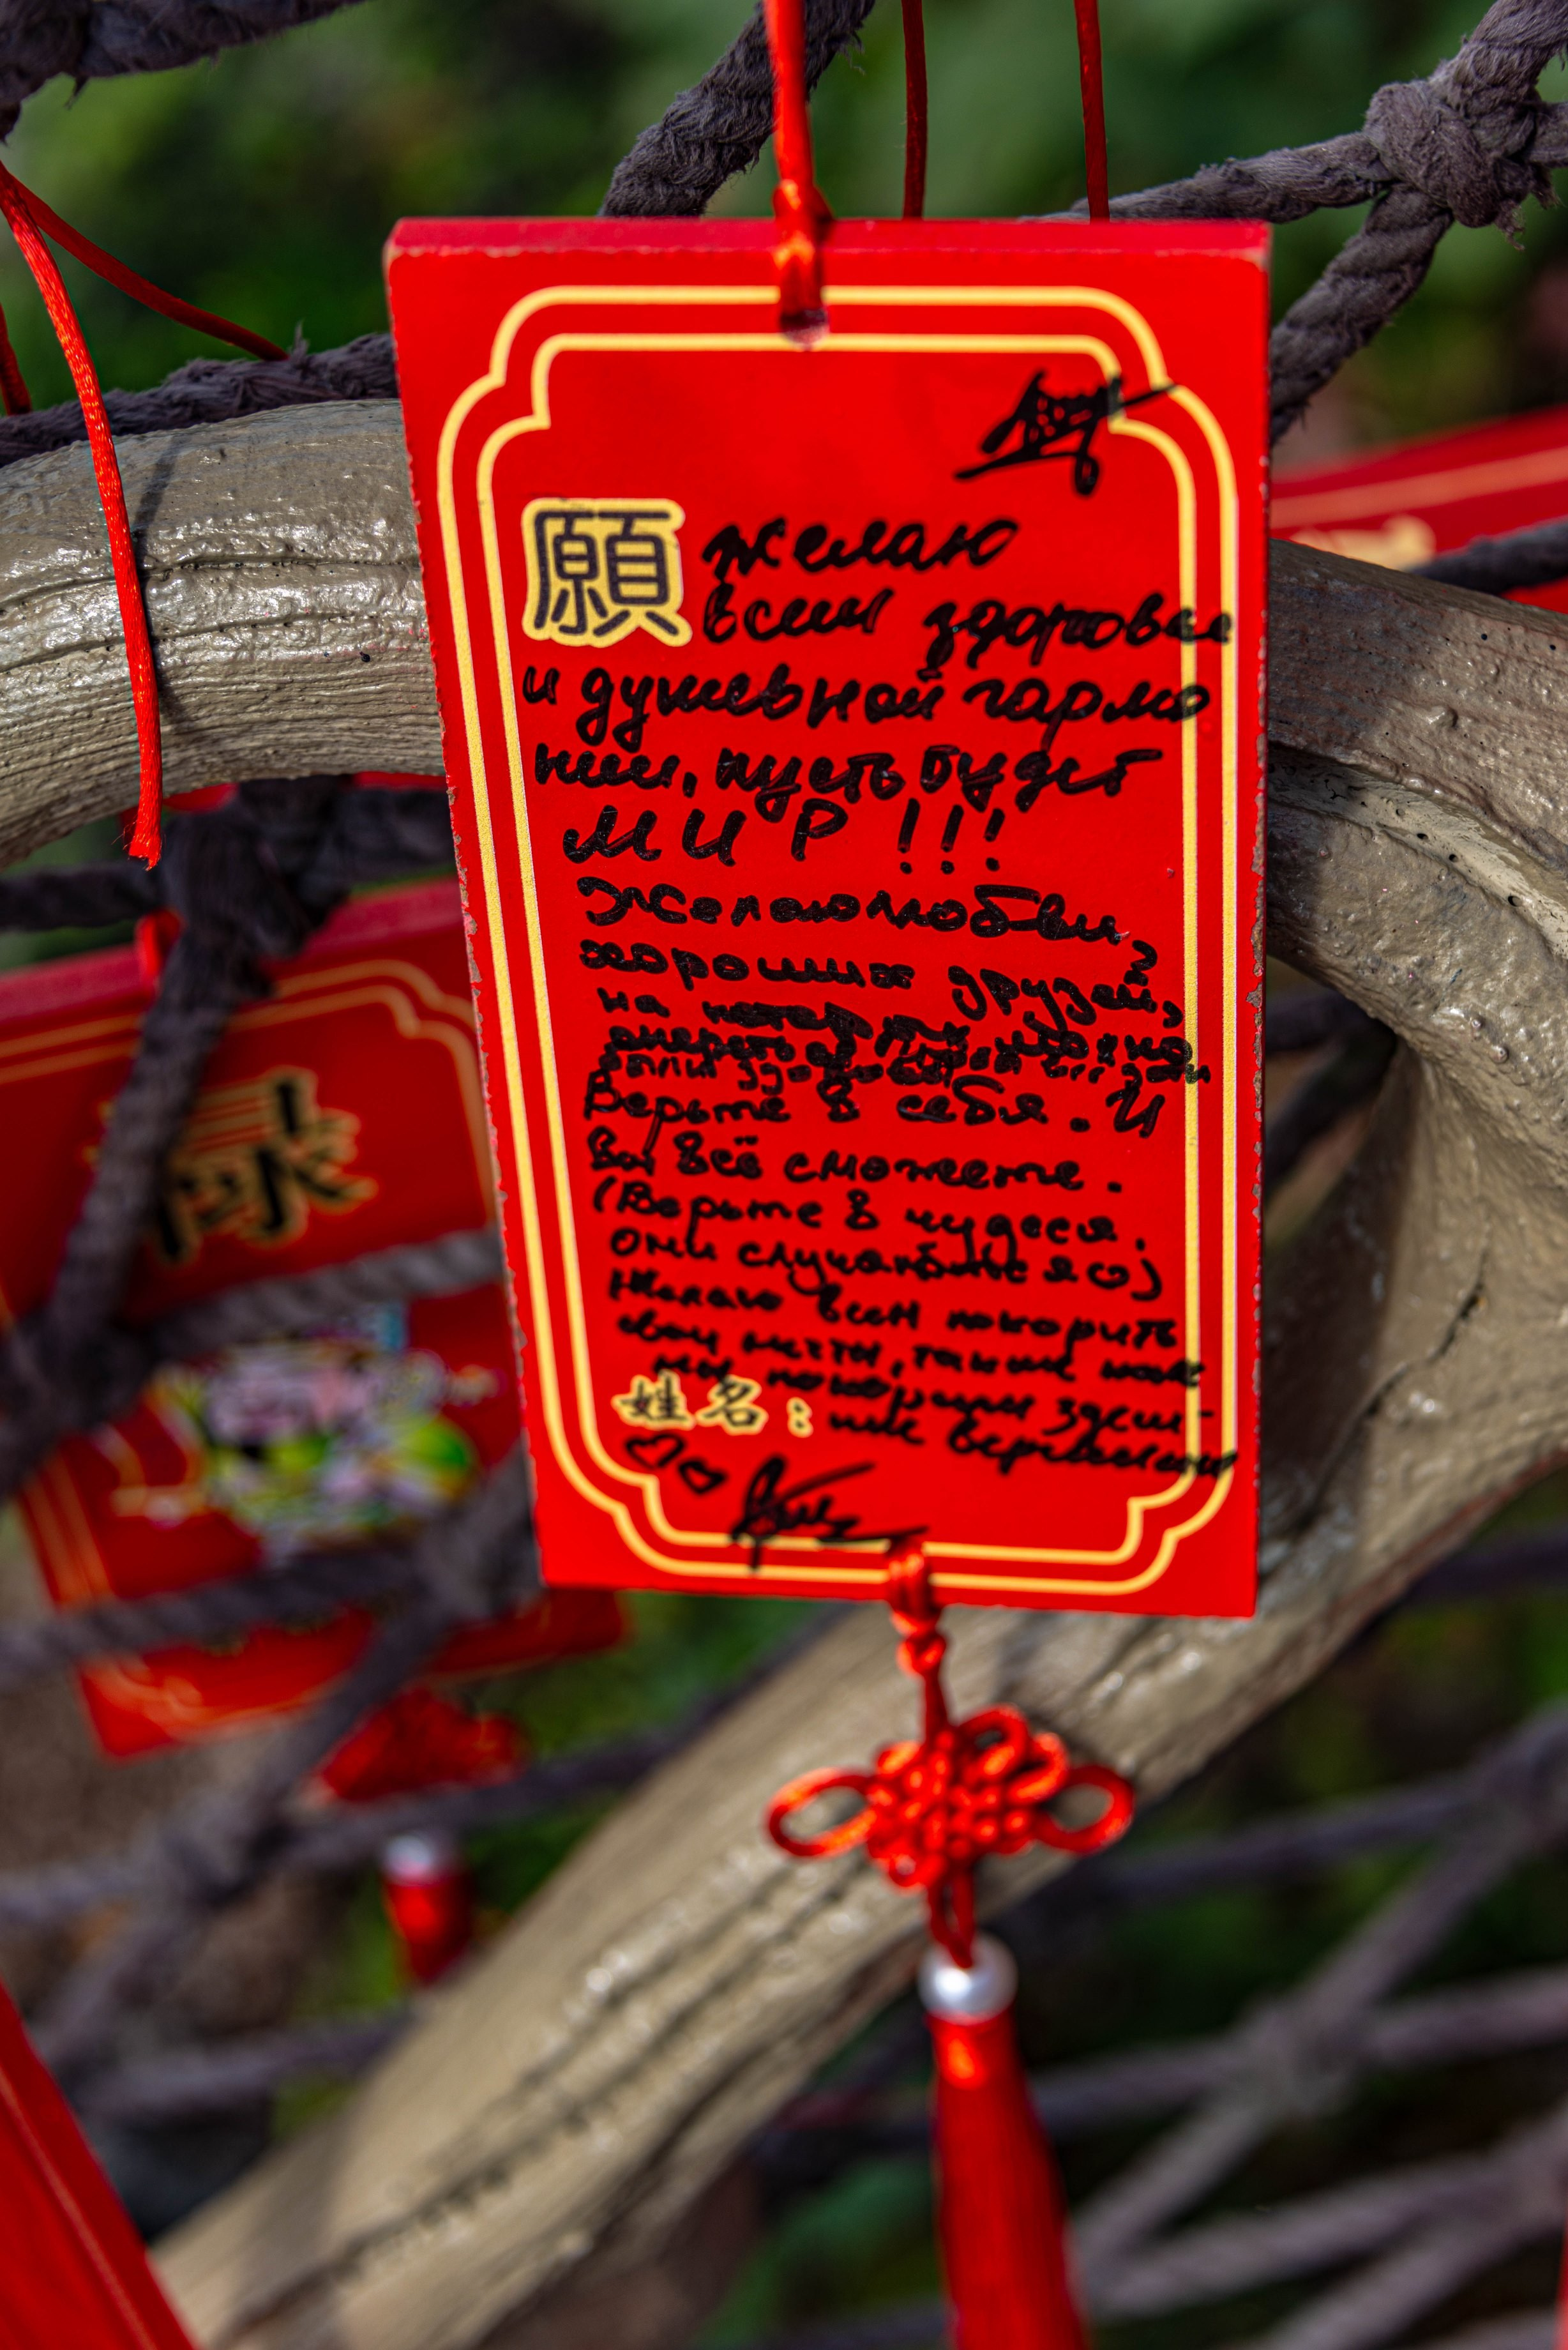 願 желаю
всем здоровья
и душевной гармо
нии, пусть будет
МИР!!!
Желаю любви,
хороших друзей,
на которых можно
Верьте в себя. И
Вы всё сможете.
(Верьте в чудеса.
они случаються)
Желаю всем покорить
свои мечты, так же как
мы покорили здеш-
姓名: ние вершины